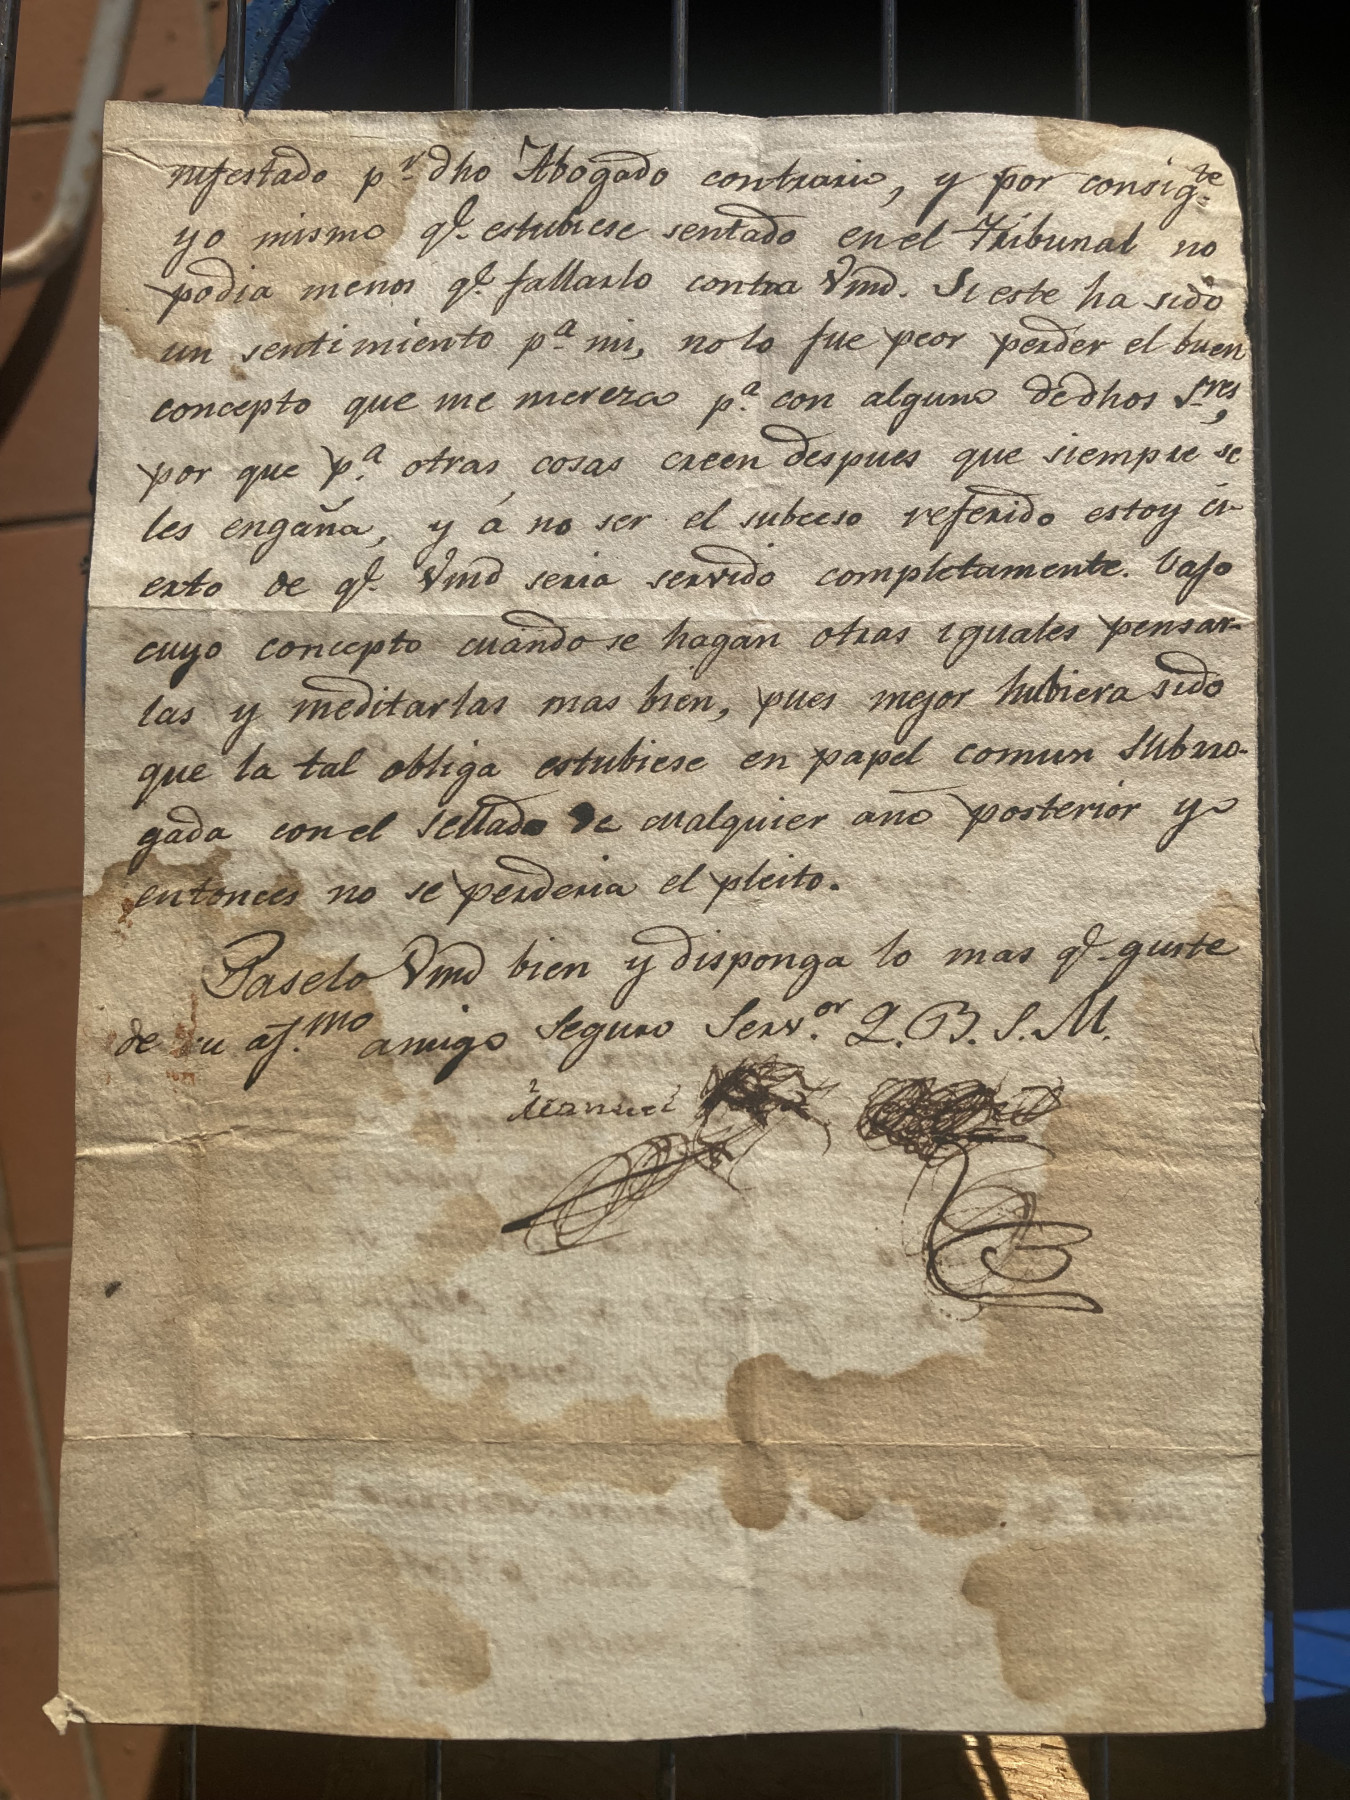 nifestado p.r dho Abogado contrario, y por consig.te
yo mismo q.e estubiese sentado en el Tribunal no
podia menos q.e fallarlo contra Vmd. Si este ha sido
un sentimiento p.a mi, no lo fue peor perder el buen
concepto que me mereza p.a con alguno de dhos S.res,
por que p.a otras cosas creen despues que siempre se
les engaña, y á no ser el subceso referido estoy ci-
erto de q.e Vmd seria servido completamente. Vajo
cuyo concepto cuando se hagan otras iguales pensar-
las y meditarlas mas bien, pues mejor hubiera sido
que la tal obliga estubiese en papel comun subrro-
gada con el sellado de cualquier año posterior y
entonces no se perderia el pleito.
Paselo Vmd bien y disponga lo mas q.e guste
de su af.mo amigo Seguro Serv.or Q.B.S.M.
Manuel